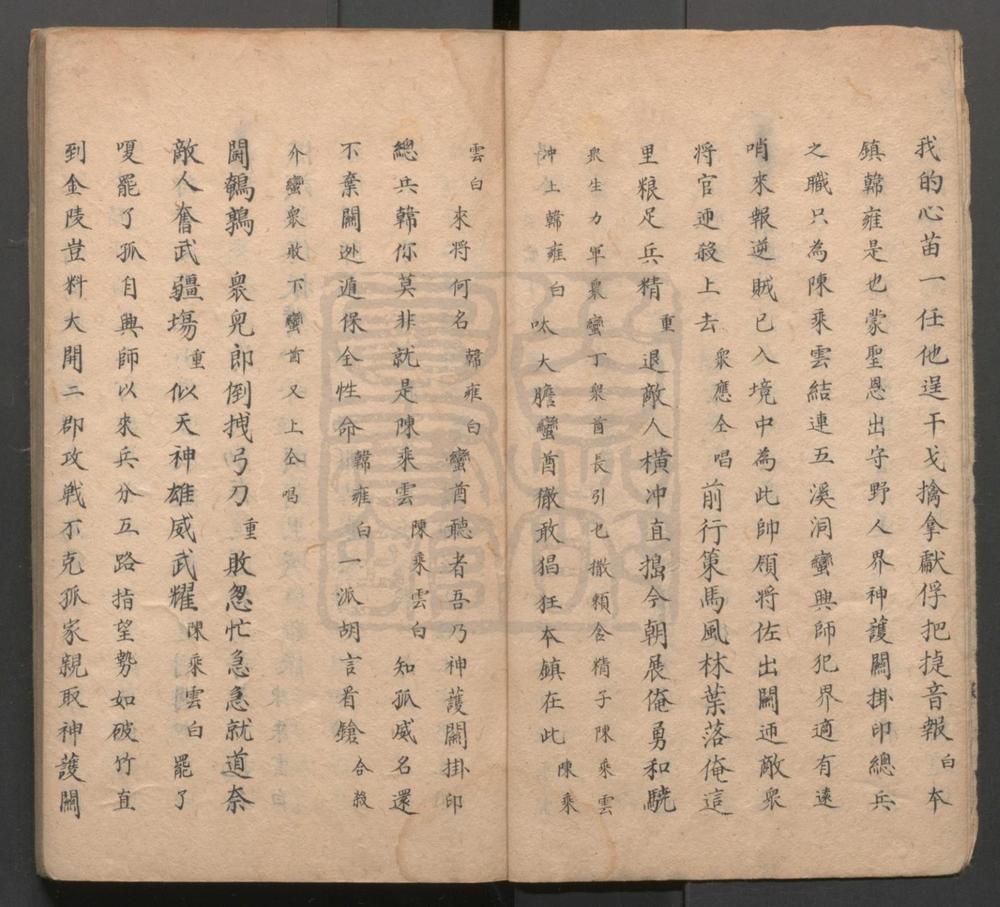 我的心苗一任他逞干戈擒拿獻俘把捷音報白本
鎮韓雍是也蒙聖恩出守野人界神護關掛印總兵
之職只為陳乘雲結連五溪洞蠻興師犯界適有遠
哨來報逆賊已入境中為此帥領將佐出關迎敵眾
將官迎殺上去眾應仝唱前行策馬風林葉落俺這
里粮足兵精重退敵人橫冲直搗今朝展俺勇和驍
眾生力軍眾蠻丁眾首長引乜撒賴含精子陳乘雲
冲上韓雍白呔大膽蠻酋徹敢猖狂本鎮在此陳乘
雲白來將何名韓雍白蠻酋聽者吾乃神護關掛印
總兵韓你莫非就是陳乘雲陳乘雲白知孤威名還
不棄關迯遁保全性命韓雍白一派胡言看鎗合殺
介蠻眾敗下蠻首又上仝唱
鬪鵪鶉眾兒郎倒拽弓刀重敗怱忙急急就道奈
敵人奮武疆場重似天神雄威武耀陳乘雲白罷了
嗄罷了孤自興師以來兵分五路指望勢如破竹直
到金陵豈料大開二郡攻戦不克孤家親取神護關